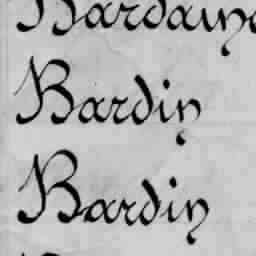 Bardin
Bardin